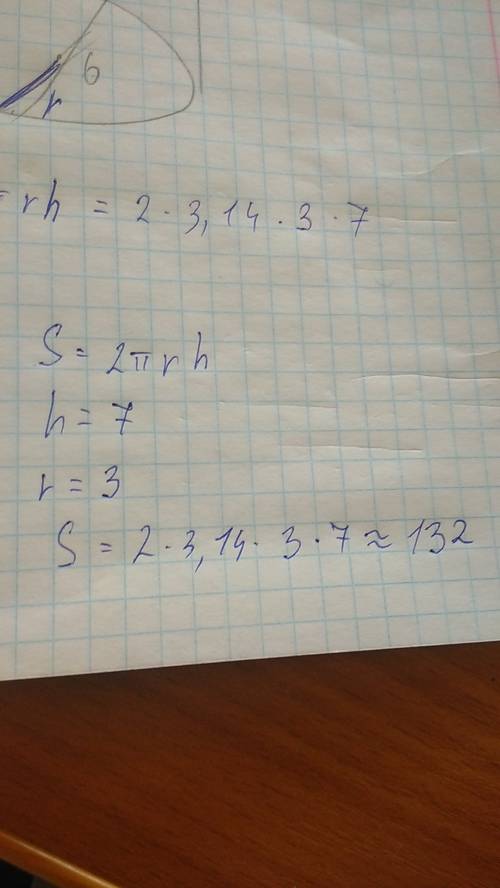 6
r
= rh = 2 · 3,14 · 3 · 7
S = 2πrh
h = 7
r = 3
S = 2 · 3,14 · 3 · 7 ≈ 132